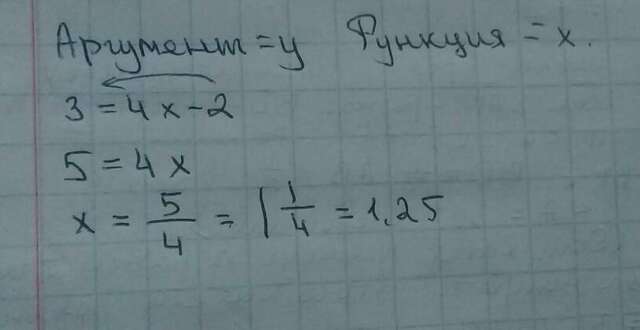 Аргумент = y Функция = x.
3 = 4x - 2
5 = 4x
x = 5/4 = 1 1/4 = 1.25